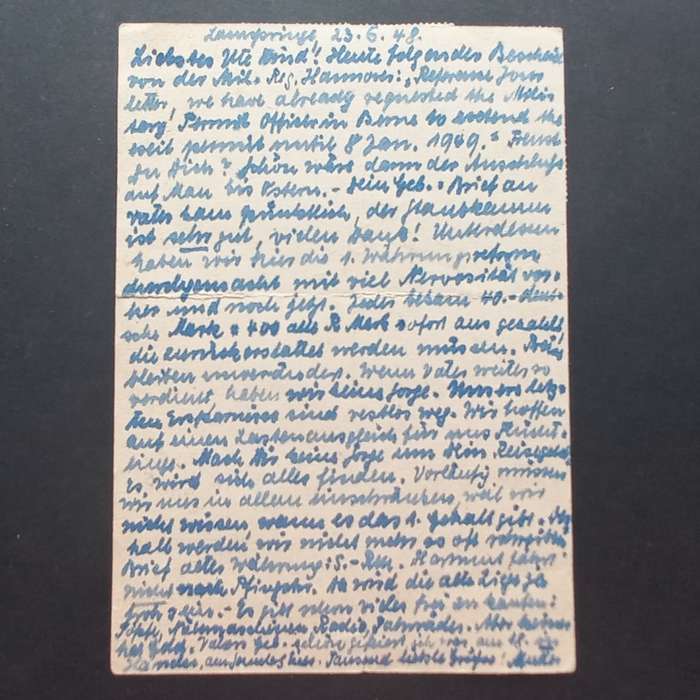 Lamspringe, 23.6.48.
Liebstes Ute Kind! Heute folgender Bescheid
von der Mil. Reg. Hannover: "Reference Your
letter, we have already requested the Mili-
tary Permit Officer in Berne to extend the
exit permit until 8 Jan. 1949." Freust
Du Dich? Schön wäre dann der
auf Mau bis Ostern. - Dein Geb.-Brief an
Vater kam pünktlich, der
ist sehr gut, vielen Dank! Unterdessen
haben wir hier die 1. Währungsreform
durchgemacht mit viel Nervosität vor-
her und noch jetzt. Jeder bekam 40.- Deut-
sche Mark = 400 alte R. Mark sofort ausgezahlt,
die zurückerstattet werden müssen.
bleiben unverändert. Wenn Vater weiter so
verdient, haben wir keine Sorge. Unsere letz-
ten Ersparnisse sind restlos weg. Wir hoffen
auf einen Lastenausgleich für uns Flücht-
linge. Mach Dir keine Sorge um Dein Reisegeld,
es wird sich alles finden. Vorläufig müssen
wir uns in allem einschränken, weil wir
nicht wissen, wann es das 1. Gehalt gibt. Des-
halb werden wir nicht mehr so oft schreiben
Brief alter Währung: 5.- RM. Hartmut fährt
nicht nach Pfingsten. wird die alte
sein. - Es gibt schon vieles frei zu kaufen:
Töpfe, Nähmaschinen, Radio, Fahrräder. Aber keiner
hat Geld. Vaters Geb. schön gefeiert
Tausend liebste Grüße! Mutter